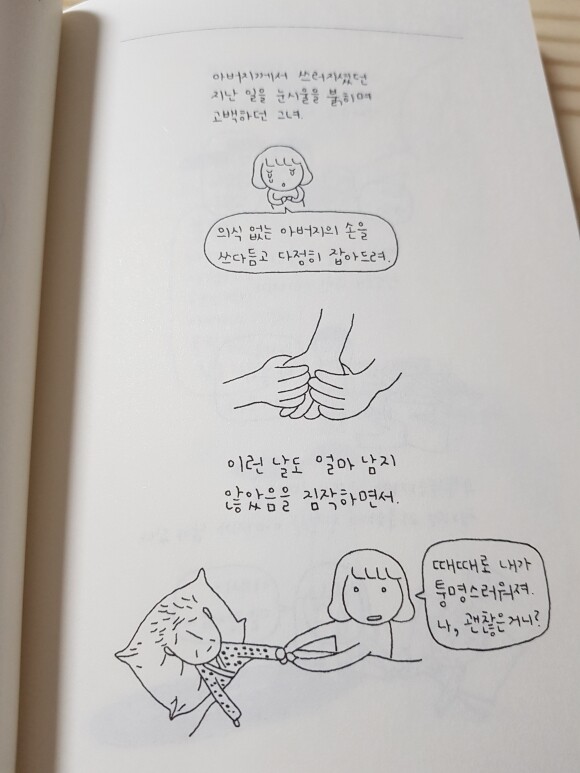 아버지께서 쓰러지셨던
지난 일을 눈시울을 붉히며
고백하던 그녀.
의식 없는 아버지의 손을
쓰다듬고 다정히 잡아드려.
이런 날도 얼마 남지
않았음을 짐작하면서.
때때로 내가
퉁명스러워져.
나, 괜찮은거니?